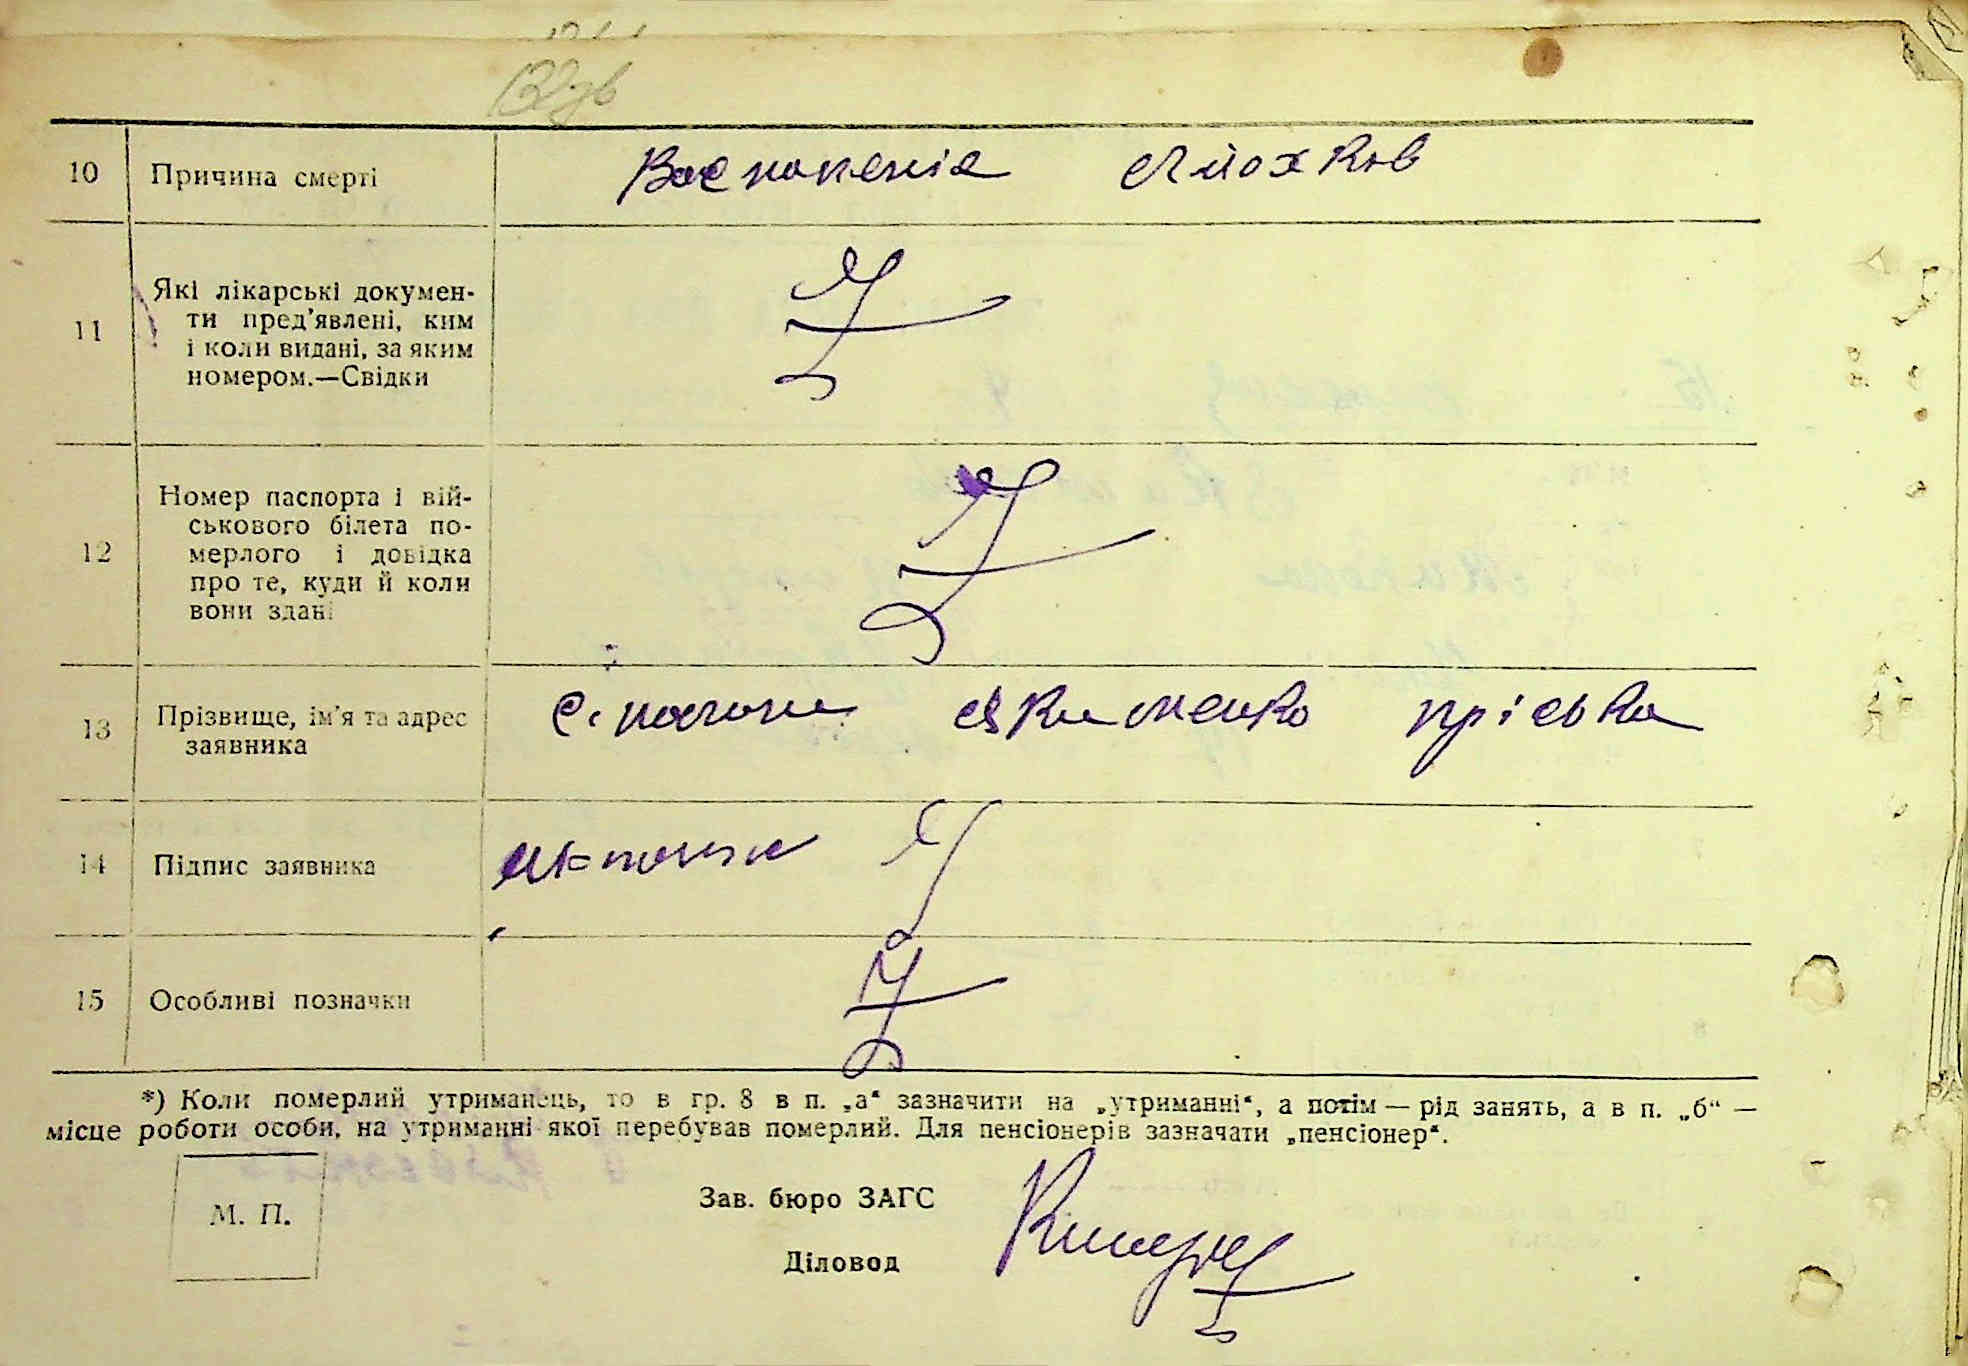 132зв
10 Причина смерті Воспаленія льохків
11 Які лікарські докумен-
ти пред'явлені, ким
і коли видані, за яким
номером.—Свідки
12 Номер паспорта і вій-
ськового білета по-
мерлого і довідка
про те, куди й коли
вони здані
13 Прізвище, ім'я та адрес с. Якименко Пріська
заявника
14 Підпис заявника
15 Особливі позначки
*) Коли померлий утриманець, то в гр. 8 в п. „а“ зазначити на „утриманні“, а потім — рід занять, а в п. „б“ —
місце роботи особи, на утриманні якої перебував померлий. Для пенсіонерів зазначати „пенсіонер“.
М. П.
Зав. бюро ЗАГС
Діловод